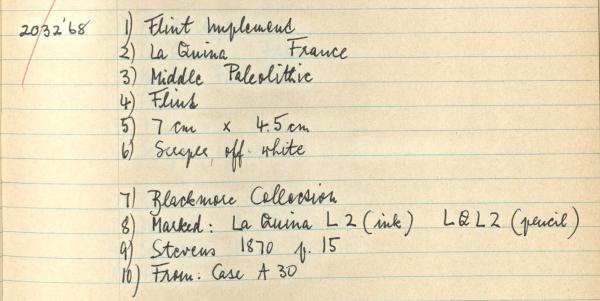 2032'68 1) Flint Implement
2) La Quina France
3) Middle Paleolithic
4) Flint
5) 7 cm x 4.5 cm
6) Scraper, off-white
7) Blackmore Collection
8) Marked: La Quina L 2 (ink) LQL2 (pencil)
9) Stevens 1870 p. 15
10) From: Case A 30